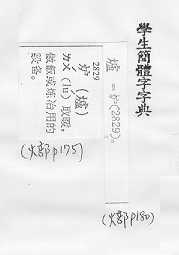 學生簡體字字典
爐=炉(2829)。
(火部p180)
2829
炉(爐)
ㄌㄨˊ(lú)取暖、
做飯或炼冶用的
設备。
(火部p175)